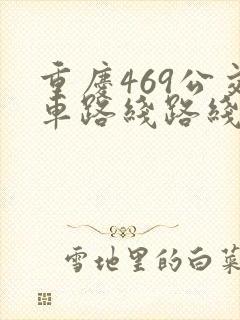 重庆469公交
车路线路线
雪地里的白菜